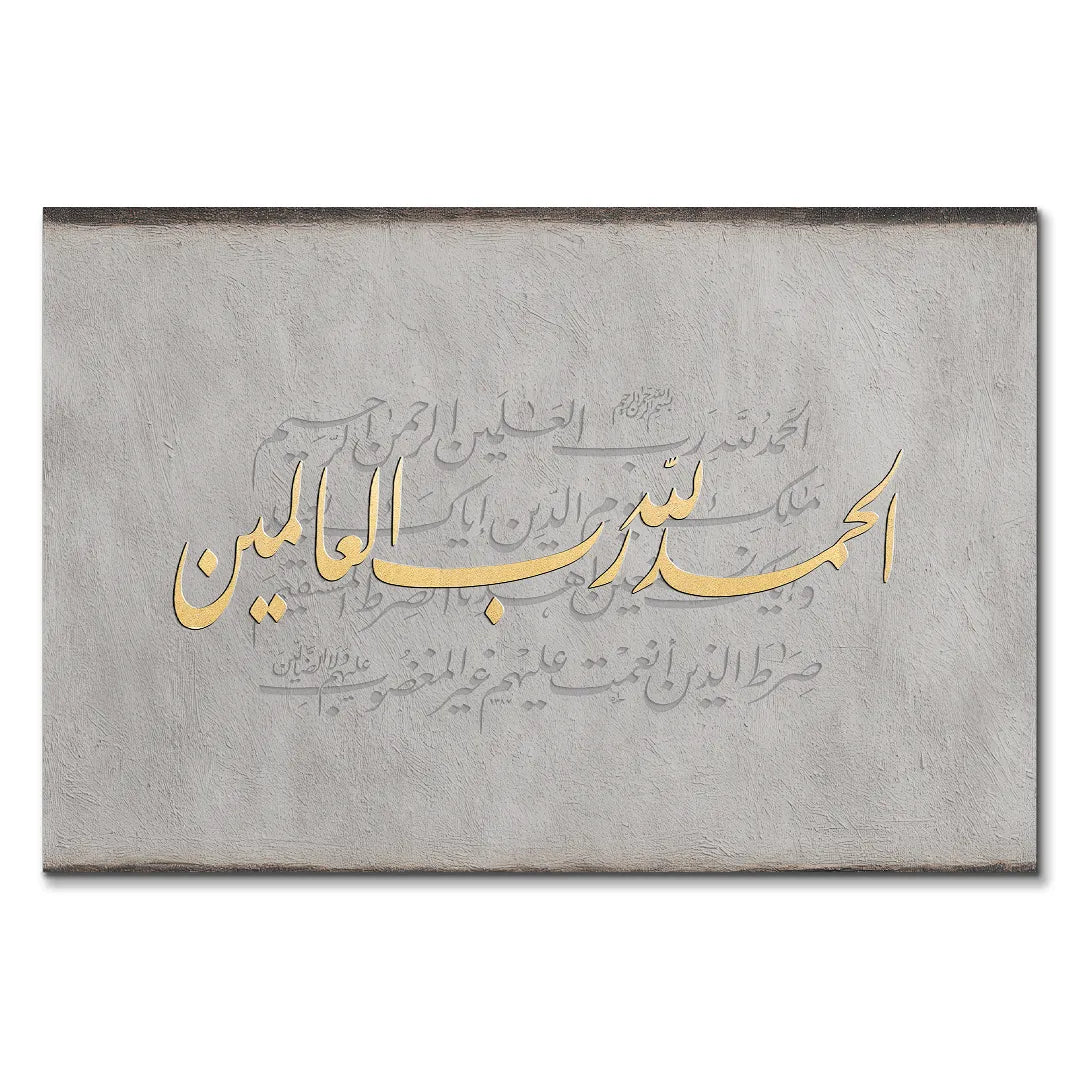 بسم الله الرحمن الرحيم
الحمد لله رب العلمين الرحمن الرحيم
ملك يوم الدين إياك
الحمد لله رب العالمين
وإياك اهدنا الصرط المستقيم
صرط الذين أنعمت عليهم غير المغضوب عليهم ولا الضالين